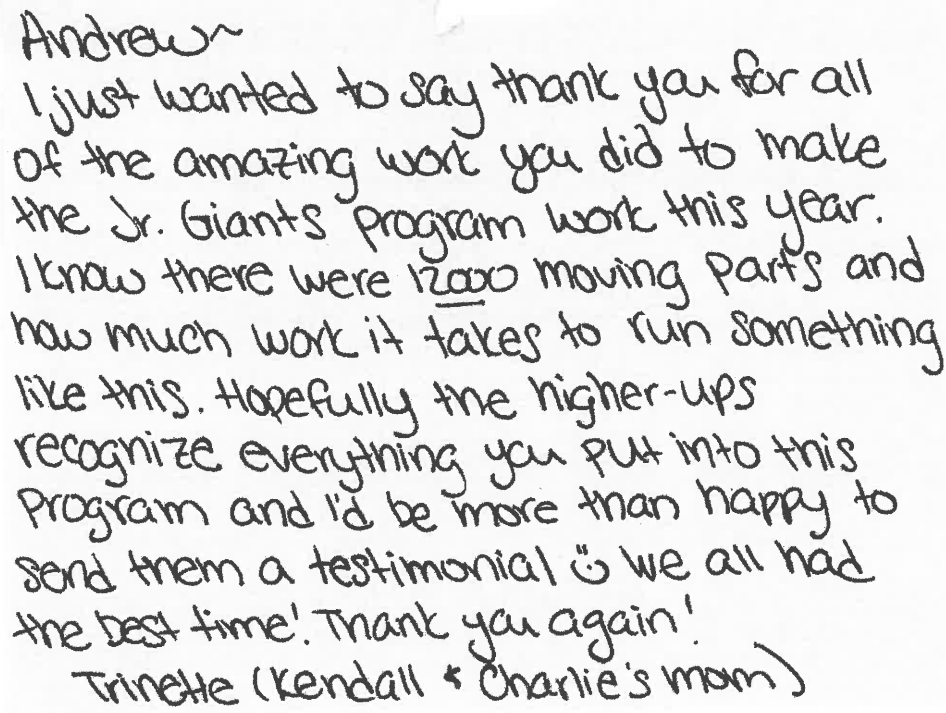 Andrew~
I just wanted to say thank you for all
of the amazing work you did to make
the Jr. Giants program work this year.
I know there were 12000 moving parts and
how much work it takes to run something
like this. Hopefully the higher-ups
recognize everything you put into this
program and I'd be more than happy to
send them a testimonial ü we all had
the best time! Thank you again!
Trinette (Kendall & Charlie's mom)